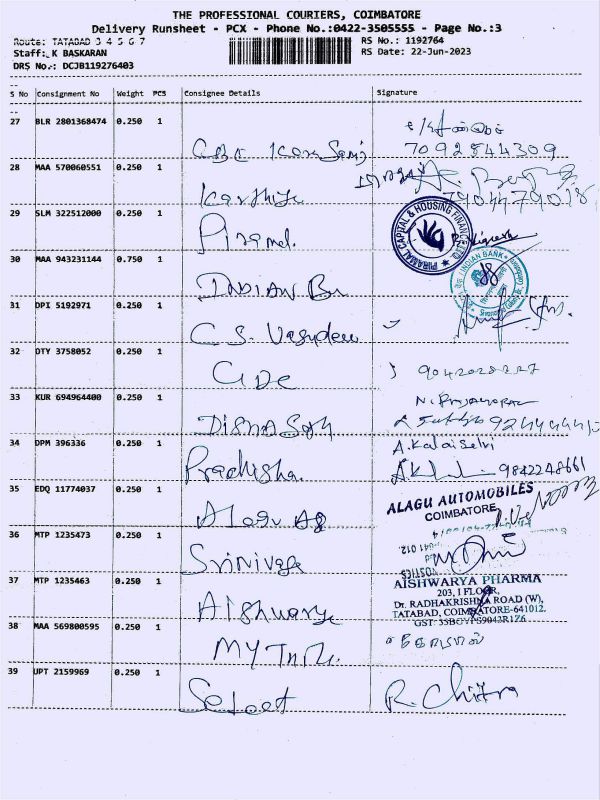 THE PROFESSIONAL COURIERS, COIMBATORE
Delivery Runsheet - PCX - Phone No.:0422-3505555 - Page No.:3
Route: TATABAD 3 4 5 6 7
RS No.: 1192764
Staff: K BASKARAN
RS Date: 22-Jun-2023
DRS No.: DCJB119276403
S No Consignment No Weight PCS Consignee Details Signature
27 BLR 2801368474 0.250 1
7092844309
28 MAA 570060551 0.250 1
Karthik
7904479018
29 SLM 322512000 0.250 1
Piramel
PIRAMAL CAPITAL & HOUSING FINANCE LTD
30 MAA 943231144 0.750 1
INDIAN Bn
INDIAN BANK
31 DPI 5192971 0.250 1
C.S. Vasudev
32 OTY 3758052 0.250 1
33 KUR 694964400 0.250 1
34 DPM 396336 0.250 1
A.Kalaiselvi
Pradhisha.
9842248661
35 EDQ 11774037 0.250 1
ALAGU AUTOMOBILES
COIMBATORE
36 MTP 1235473 0.250 1
Srinivasa
37 MTP 1235463 0.250 1
AISHWARYA PHARMA
203, I FLOOR,
Dr. RADHAKRISHNA ROAD (W),
TATABAD, COIMBATORE-641012.
Aishwarya
38 MAA 569800595 0.250 1
39 UPT 2159969 0.250 1
Select
R. Chitra